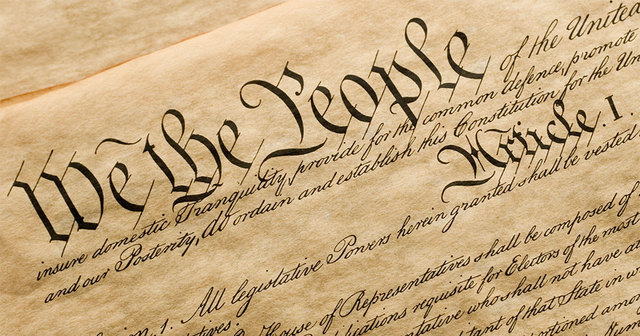 We the People of the United
insure domestic Tranquility, provide for the common defence, promote
and our Posterity, do ordain and establish this Constitution for the Un
Article. I.
1. All legislative Powers herein granted shall be vested
House of Representatives shall be composed of
requisite for Electors of the most
who shall not have a
of that State in w